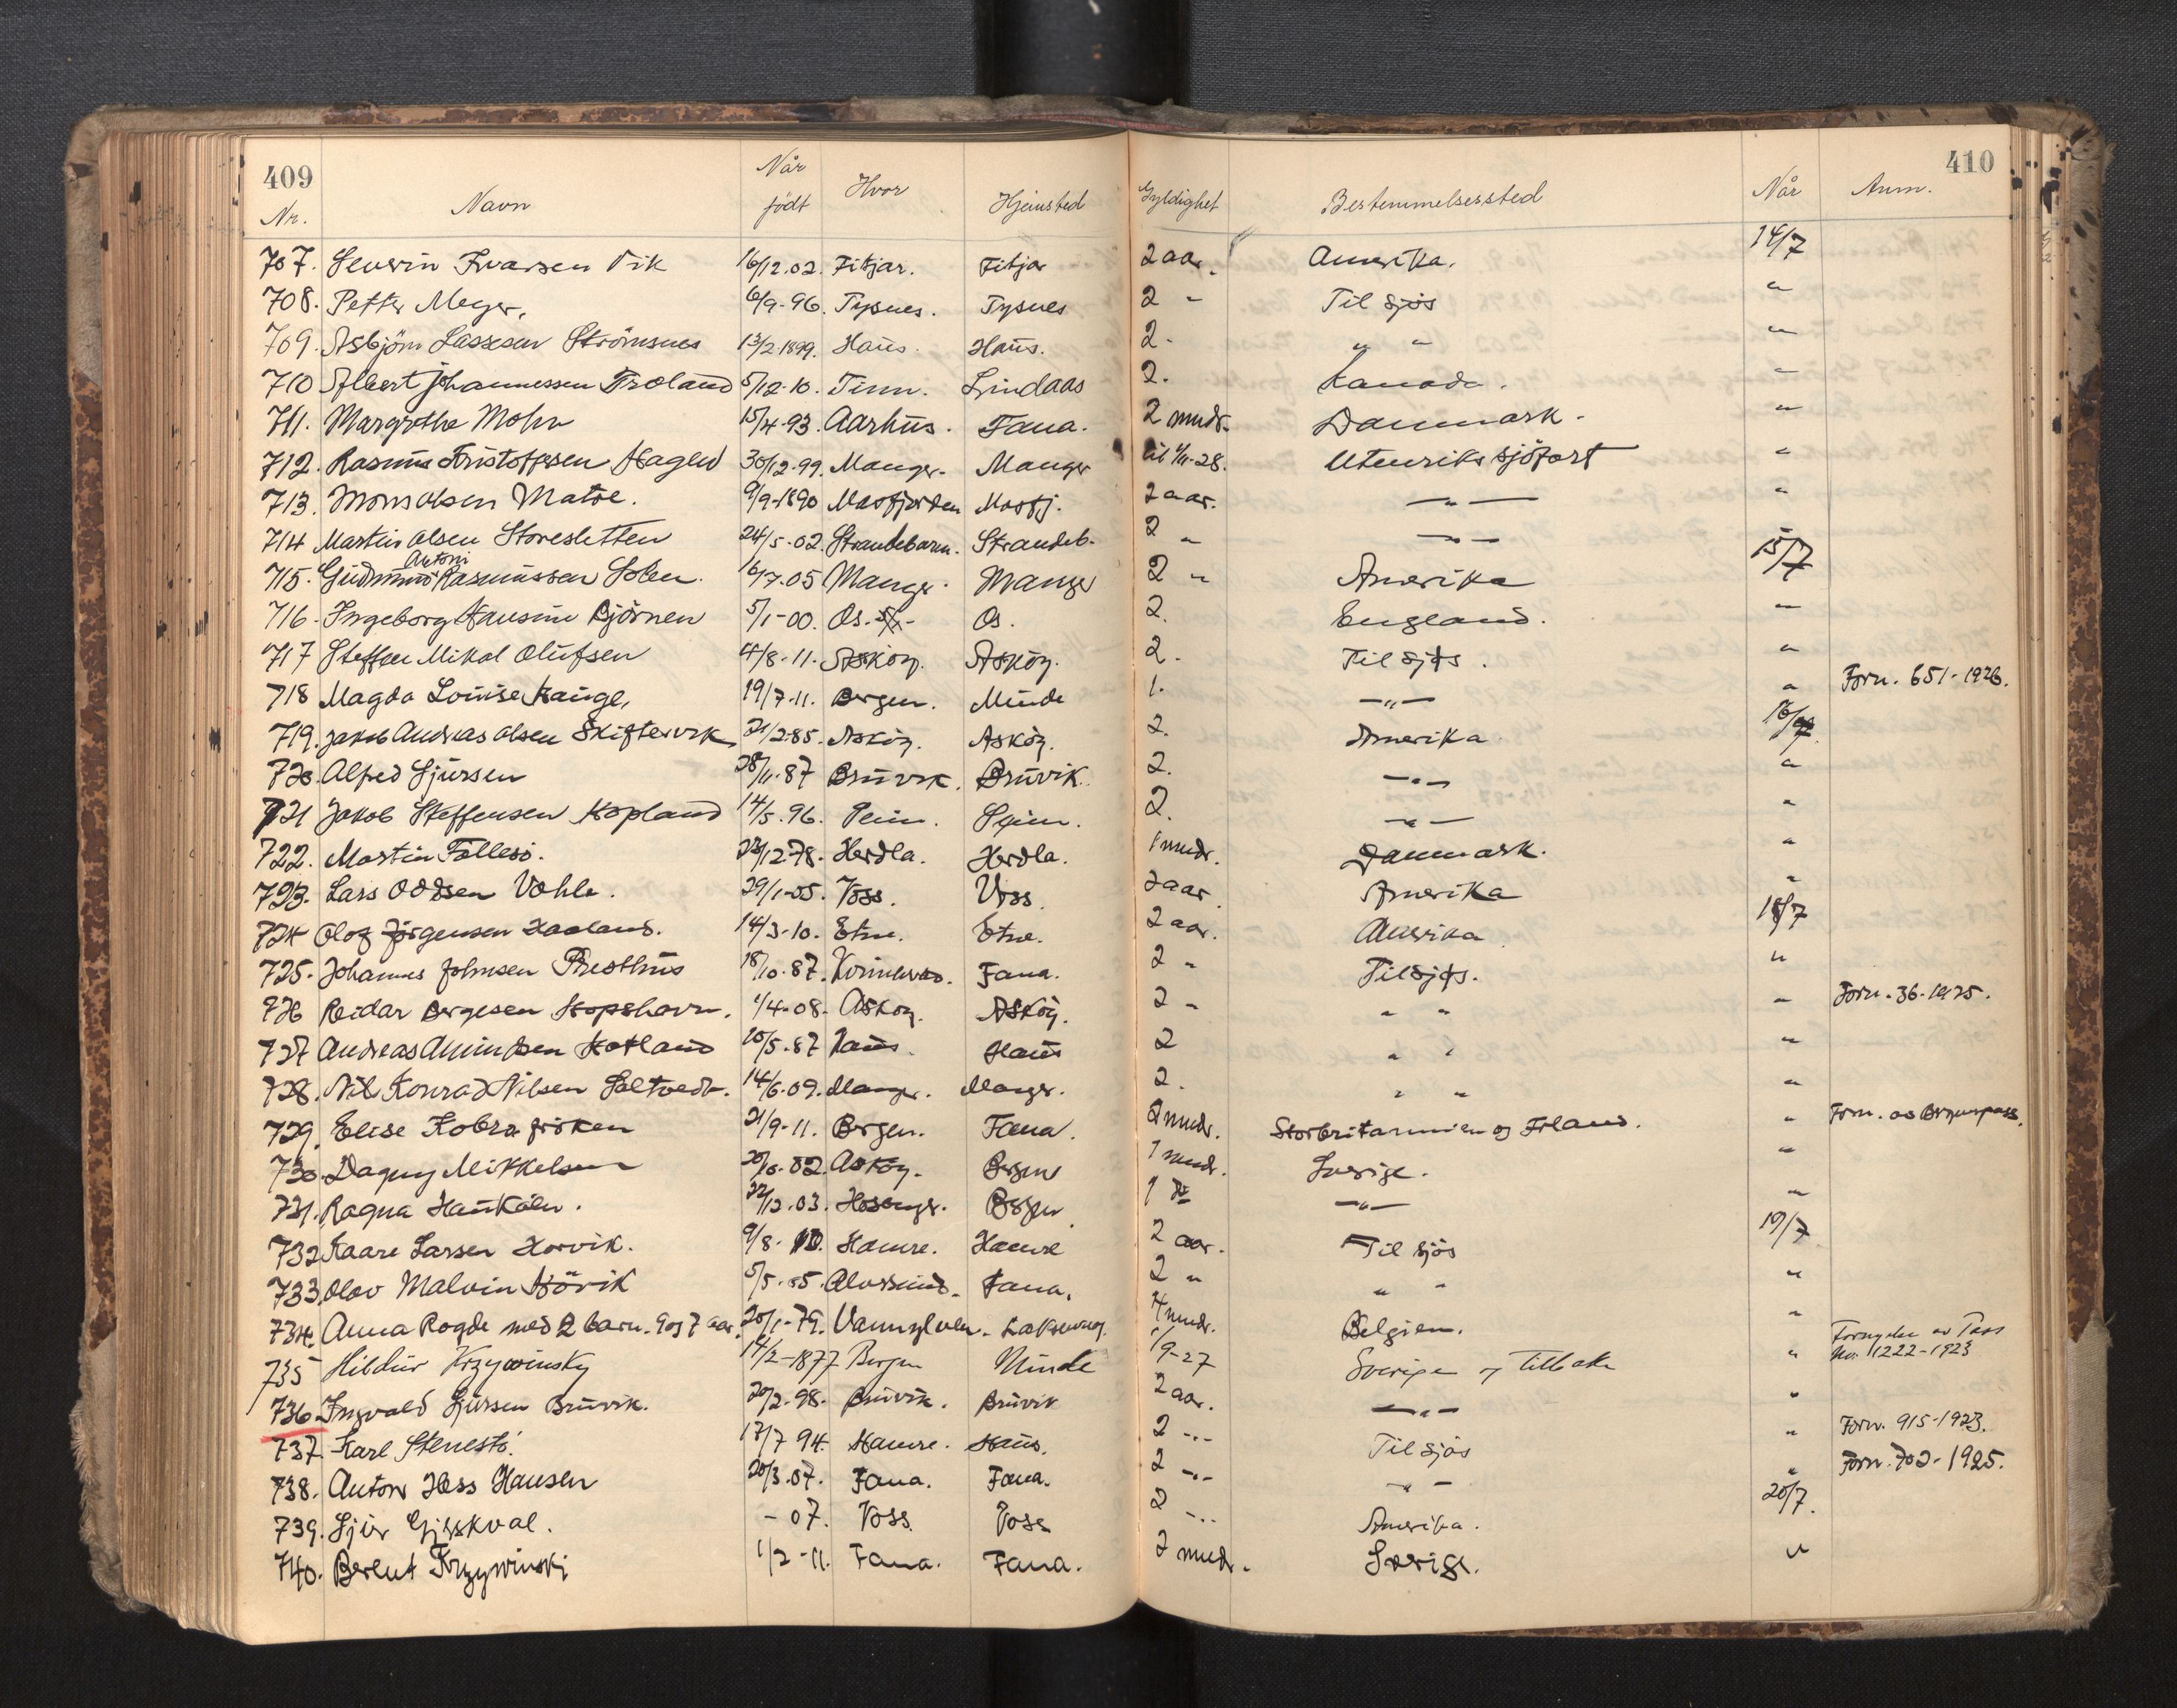 409 410
Nr. Navn Når født Hvor Hjemsted Gyldighet Bestemmelsessted Når Anm.
707. Severin Ivarsen Vik 16/12.02. Fitjar. Fitjar 2 aar. Amerika. 14/7
708. Petter Meyer. 6/9-96. Tysnes. Tysnes 2 - Til sjøs "
709. Asbjörn Lassesen Strömsnes 13/2 1899. Haus. Haus. 2. " " "
710 Albert Johannessen Troland 5/12-10. Tinn. Lindaas 2. Kanada. "
711. Margrethe Mohn 15/4-93. Aarhus. Fana. 2 mndr. Danmark. "
712. Rasmus Kristoffersen Hagen 30/12-99. Manger. Manger til 1/11-28. Utenriks sjöfart "
713. Mons Olsen Matre. 9/9-1890 Masfjorden Masfj. 2 aar. — " — "
714 Martin Olsen Storesletten 24/5-02. Strandebarm. Strandeb. 2 " — " —
715. Gudmund Antoni Rasmussen Solen. 6/7.05 Manger. Manger 2 " Amerika 15/7
716. Ingeborg Hansine Björnen 5/1-00. Os. Os. 2. England. "
717 Steffen Mikal Olufsen 4/8-11. Asköy. Asköy. 2. Til sjøs. "
718 Magda Louise Hauge, 19/7-11. Bergen. Minde 1. — " — " Forn. 651-1926.
719. Jakob Andreas Olsen Skiftesvik 21/2-85. Asköy. Asköy. 2. Amerika 16/7
720. Alfred Sjursen 28/11-87 Bruvik. Bruvik. 2. — " — "
721 Jakob Steffensen Hopland 14/5.96. Seim. Seim. 2. — " — "
722. Martin Follesö. 23/12-78. Herdla. Herdla. 1 mndr. Danmark. "
723. Lars Oddsen Vöhle. 29/1-05. Voss. Voss. 2 aar. Amerika "
724 Olog Jörgensen Haaland. 14/3-10. Etne. Etne. 2 aar. Amerika 18/7
725. Johannes Johnsen Presthus 18/10.87. Kvinherad. Fana. 2 " Til sjøs. "
726 Reidar Børgesen Hopshavn. 1/4-08. Asköy. Asköy. 2 - " " " Forn. 36-1925.
727 Andreas Amundsen Hotland 10/5.87 Haus. Haus 2 " " "
728. Nils Konrad Nilsen Soltvedt. 14/6.09. Manger. Manger. 2. " " "
729. Elise Kobro fröken 21/9-11. Bergen. Fana. 2 mndr. Storbritannien og Irland. " Forn. av Bergenspass.
730. Dagny Mikkelsen 20/10.82. Asköy. Bergen 1 mndr. Sverige. "
731. Ragna Haukåen. 22/12.03. Hosanger. Bergen 1 do — " — "
732 Kaare Larsen Horvik. 9/8-10. Hamre. Hamre 2 aar. Til sjös 19/7
733. Olav Malvin Hövik 5/5.05. Alversund. Fana. 2 " " " "
734. Anna Rogde med 2 barn. 9 og 7 aar. 20/1-79. Vannylven. Laksevaag. 4 mndr. Belgien. "
735 Hildur Krzywinsky 14/2-1877 Bergen Minde 1/9-27 Sverige og tilbake " Fornyelse av Pass No. 1222-1923
736. Ingvald Sjursen Bruvik. 20/2-98. Bruvik. Bruvik 2 aar. — " — "
737. Karl Stenestö. 17/7 94. Hamre. Haus. 2 - " - Til sjøs " Forn. 915-1923.
738. Anton Hess Hansen 20/3.07. Fana. Fana. 2 - " - - " - " Forn. 702-1925.
739. Sjur Gjerskval. - 07. Voss. Voss 2 - " - Amerika. 20/7.
740. Berent Krzywinski 1/2-11. Fana. Fana. 2 mndr. Sverige. "